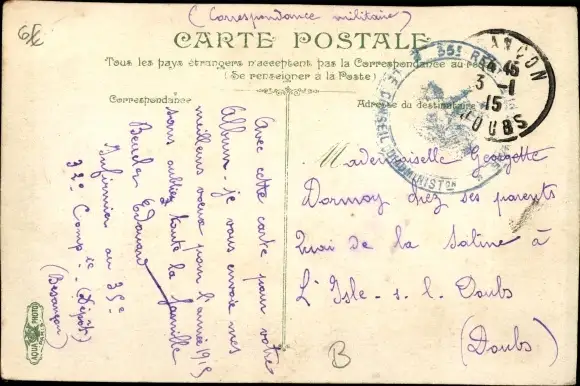 6€
(Correspondance militaire)
CARTE POSTALE
Tous les pays étrangers n'acceptent pas la Correspondance au
(Se renseigner à la Poste)
Correspondance
Adresse du destinataire
35e
CONSEIL D'ADMINISTon
ANÇON
3 -1
15
DOUBS
Avec cette carte pour votre
album, je vous envoie mes
meilleurs voeux pour l'année 1915
sans oublier toute la famille
Edouard
Infirmier au 35e
32e Compie (Dépôt)
(Besançon)
Mademoiselle Georgette
Dormoy chez ses parents
Quai de la Saline à
L'Isle-s.l. Doubs
(Doubs)
B